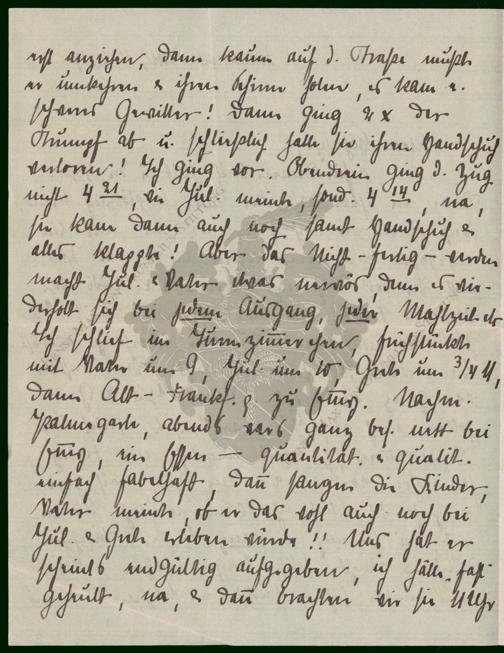 erst anziehen, dann kaum auf d. Straße mußte
er umkehren & ihren Schirm holen, es kam e.
schweres Gewitter! Dann ging 2 x der
Strumpf ab u. schließlich hatte sie ihren Handschuh
verloren! Ich ging vor. Obendrein ging d. Zug
nicht 4 21, wie Jul. meinte, sond. 4 14, na,
sie kam dann auch noch samt Handschuh &
alles klappte! Aber das Nicht-fertig-werden
macht Jul. & Vater etwas nervös, denn es wie-
derholt sich bei jedem Ausgang, jeder Mahlzeit etc
Ich schlief im Turmzimmerchen, frühstückte
mit Vater um 9, Jul. um 10 Grete um 3/4 11,
dann Alt-Frankf. & zu Nachm.
Palmengarten, abends wars ganz bes. nett bei
ein Essen — quantität. & qualit.
einfach fabelhaft, dann sangen die Kinder,
Vater meinte, ob er das wohl auch noch bei
Jul. & Grete erleben würde!! Uns hat er
scheints endgültig aufgegeben, ich hätte fast
geheult, na, & dann brachten wir sie 11 Uhr